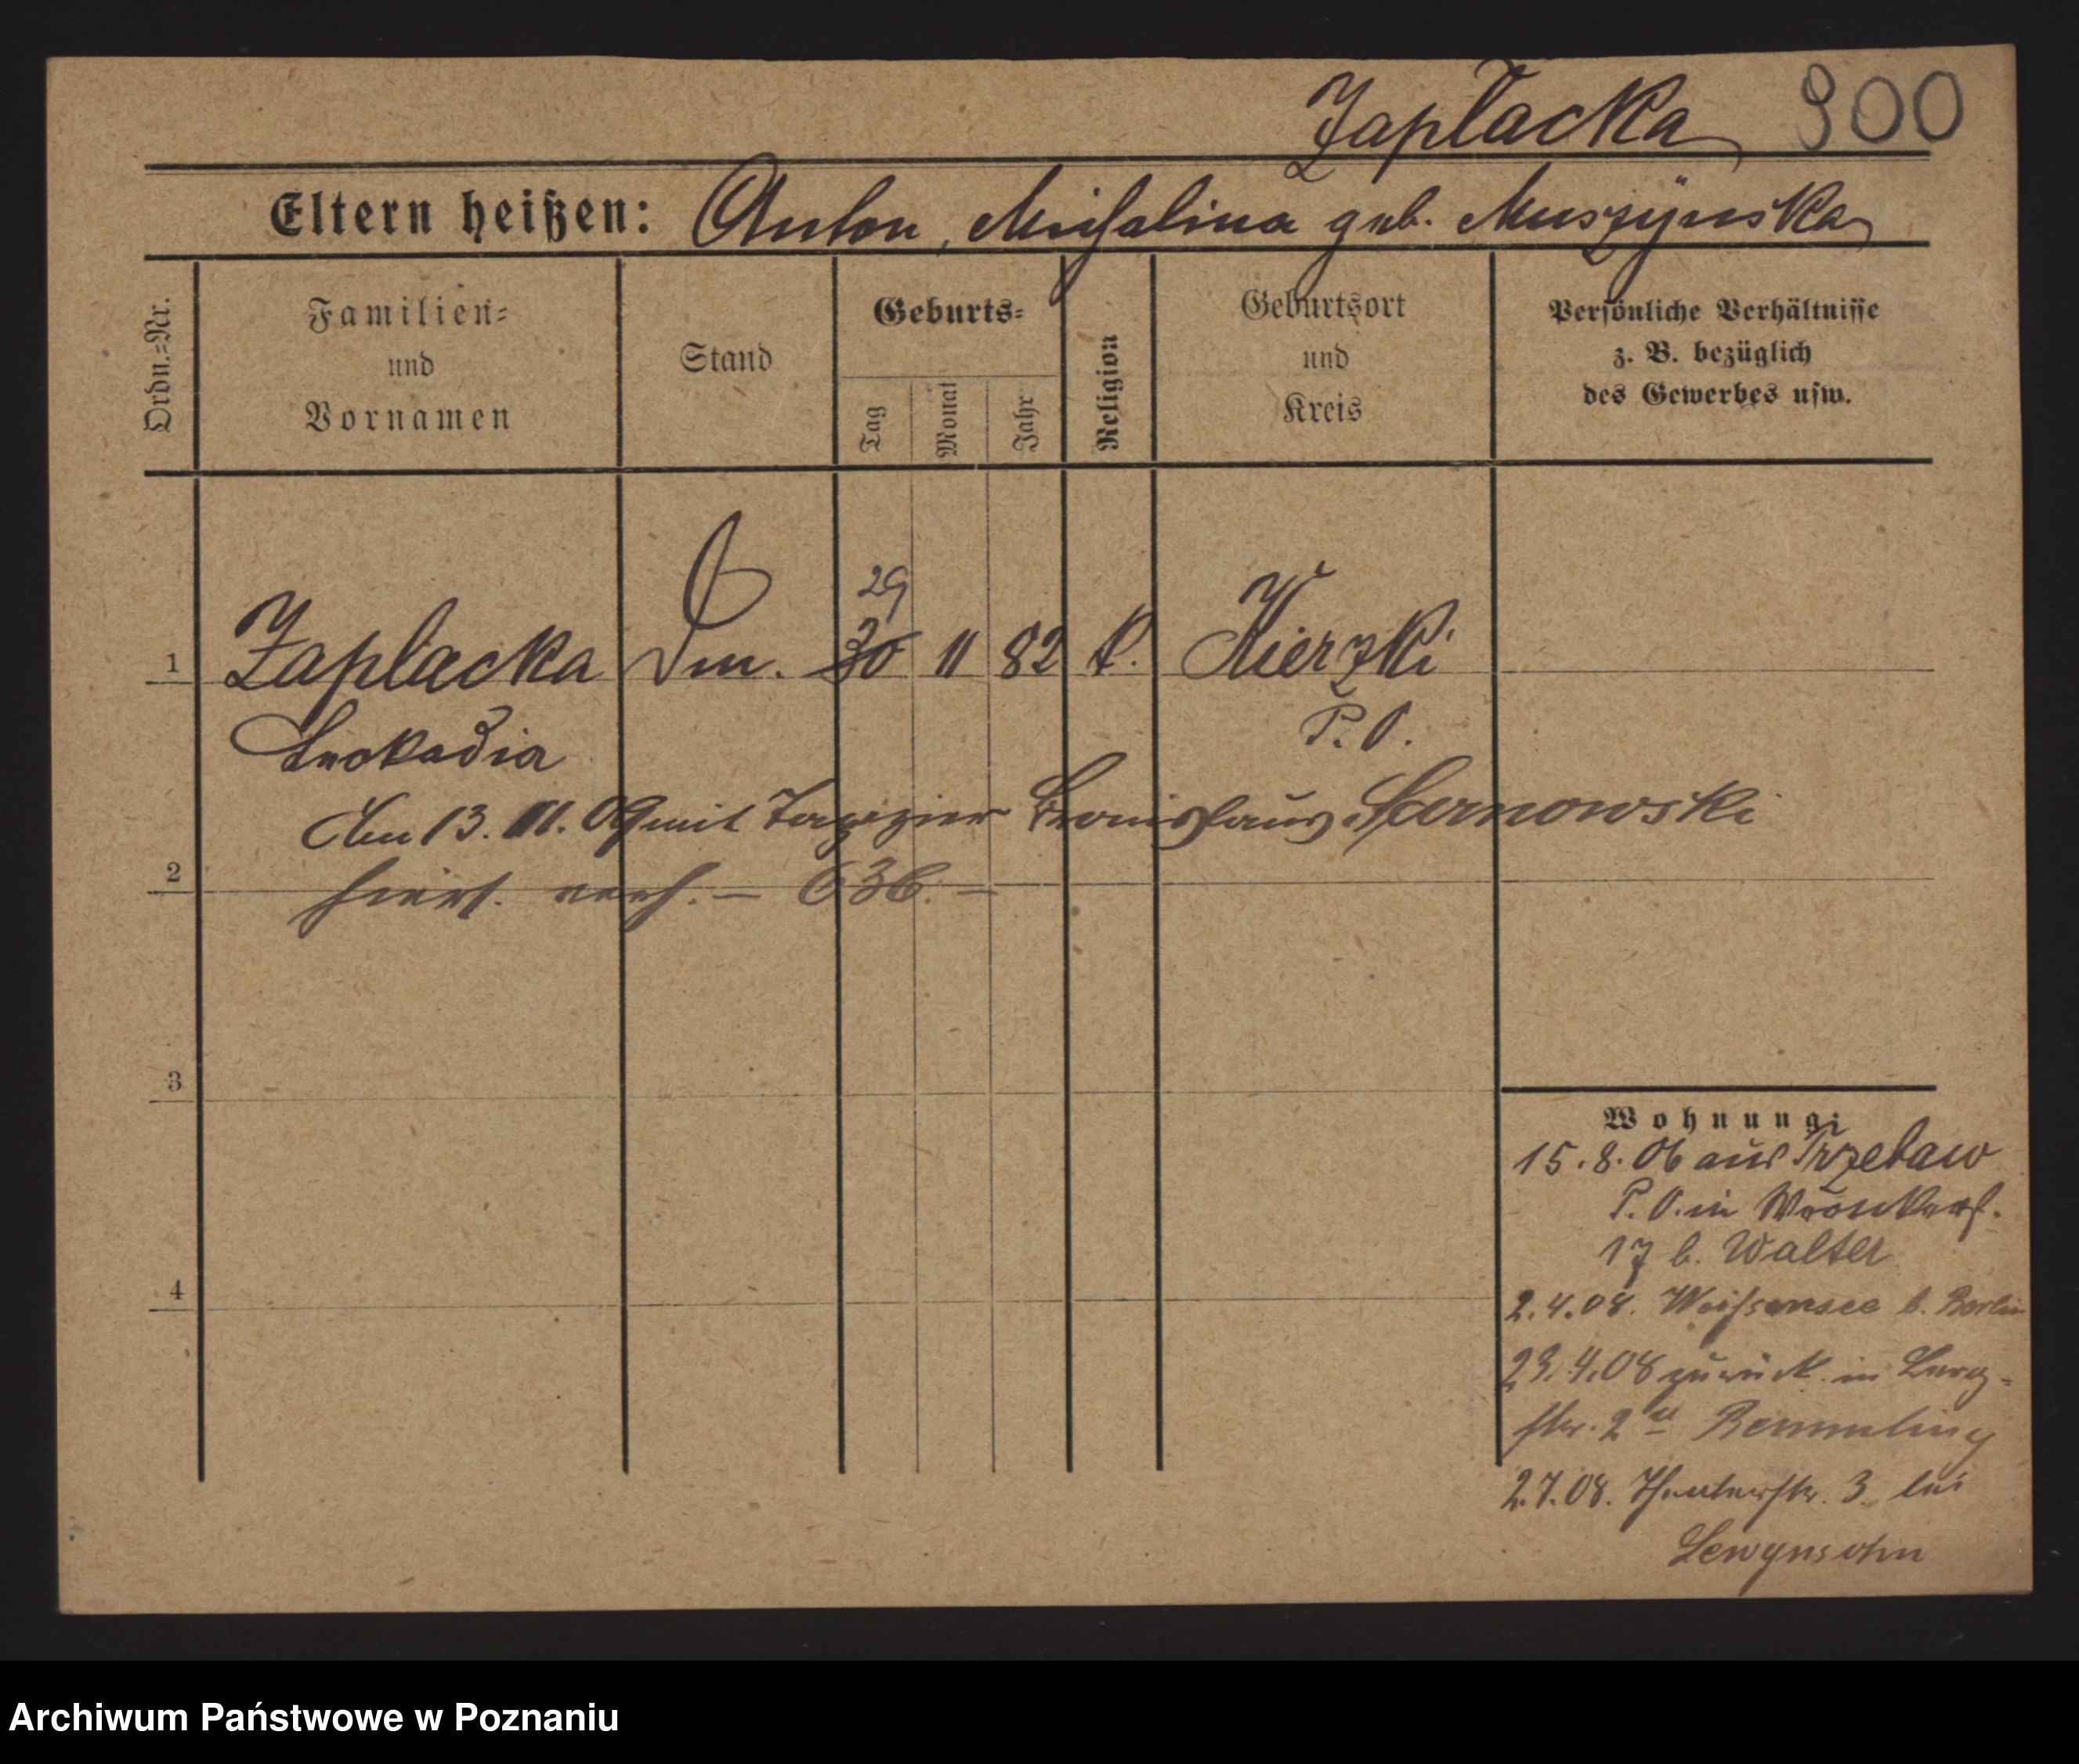 Zaplacka 900
Eltern heißen: Anton, Michalina geb. Muszÿnska
Ordn.=Nr.
Familien=
und
Vornamen
Stand
Geburts=
Tag
Monat
Jahr
Religion
Geburtsort
und
Kreis
Persönliche Verhältnisse
z. B. bezüglich
des Gewerbes usw.
29
1 Zaplacka 30 11 82 k. Kierzki
Leokadia P. O.
Am 13. 11. 09 mit Tapezier Bronislaus Sarnowski
2 hiers. verh. – 636. –
3
4
Wohnung:
15.8.06 aus Trzebaw
P. O. in
17 b. Walter
2.4.08. Weißensee b. Berlin
23.4.08 zurück in Berg=
str. 2 Bemmling
2.7.08. Theaterstr. 3. bei
Lewynsohn
Archiwum Państwowe w Poznaniu